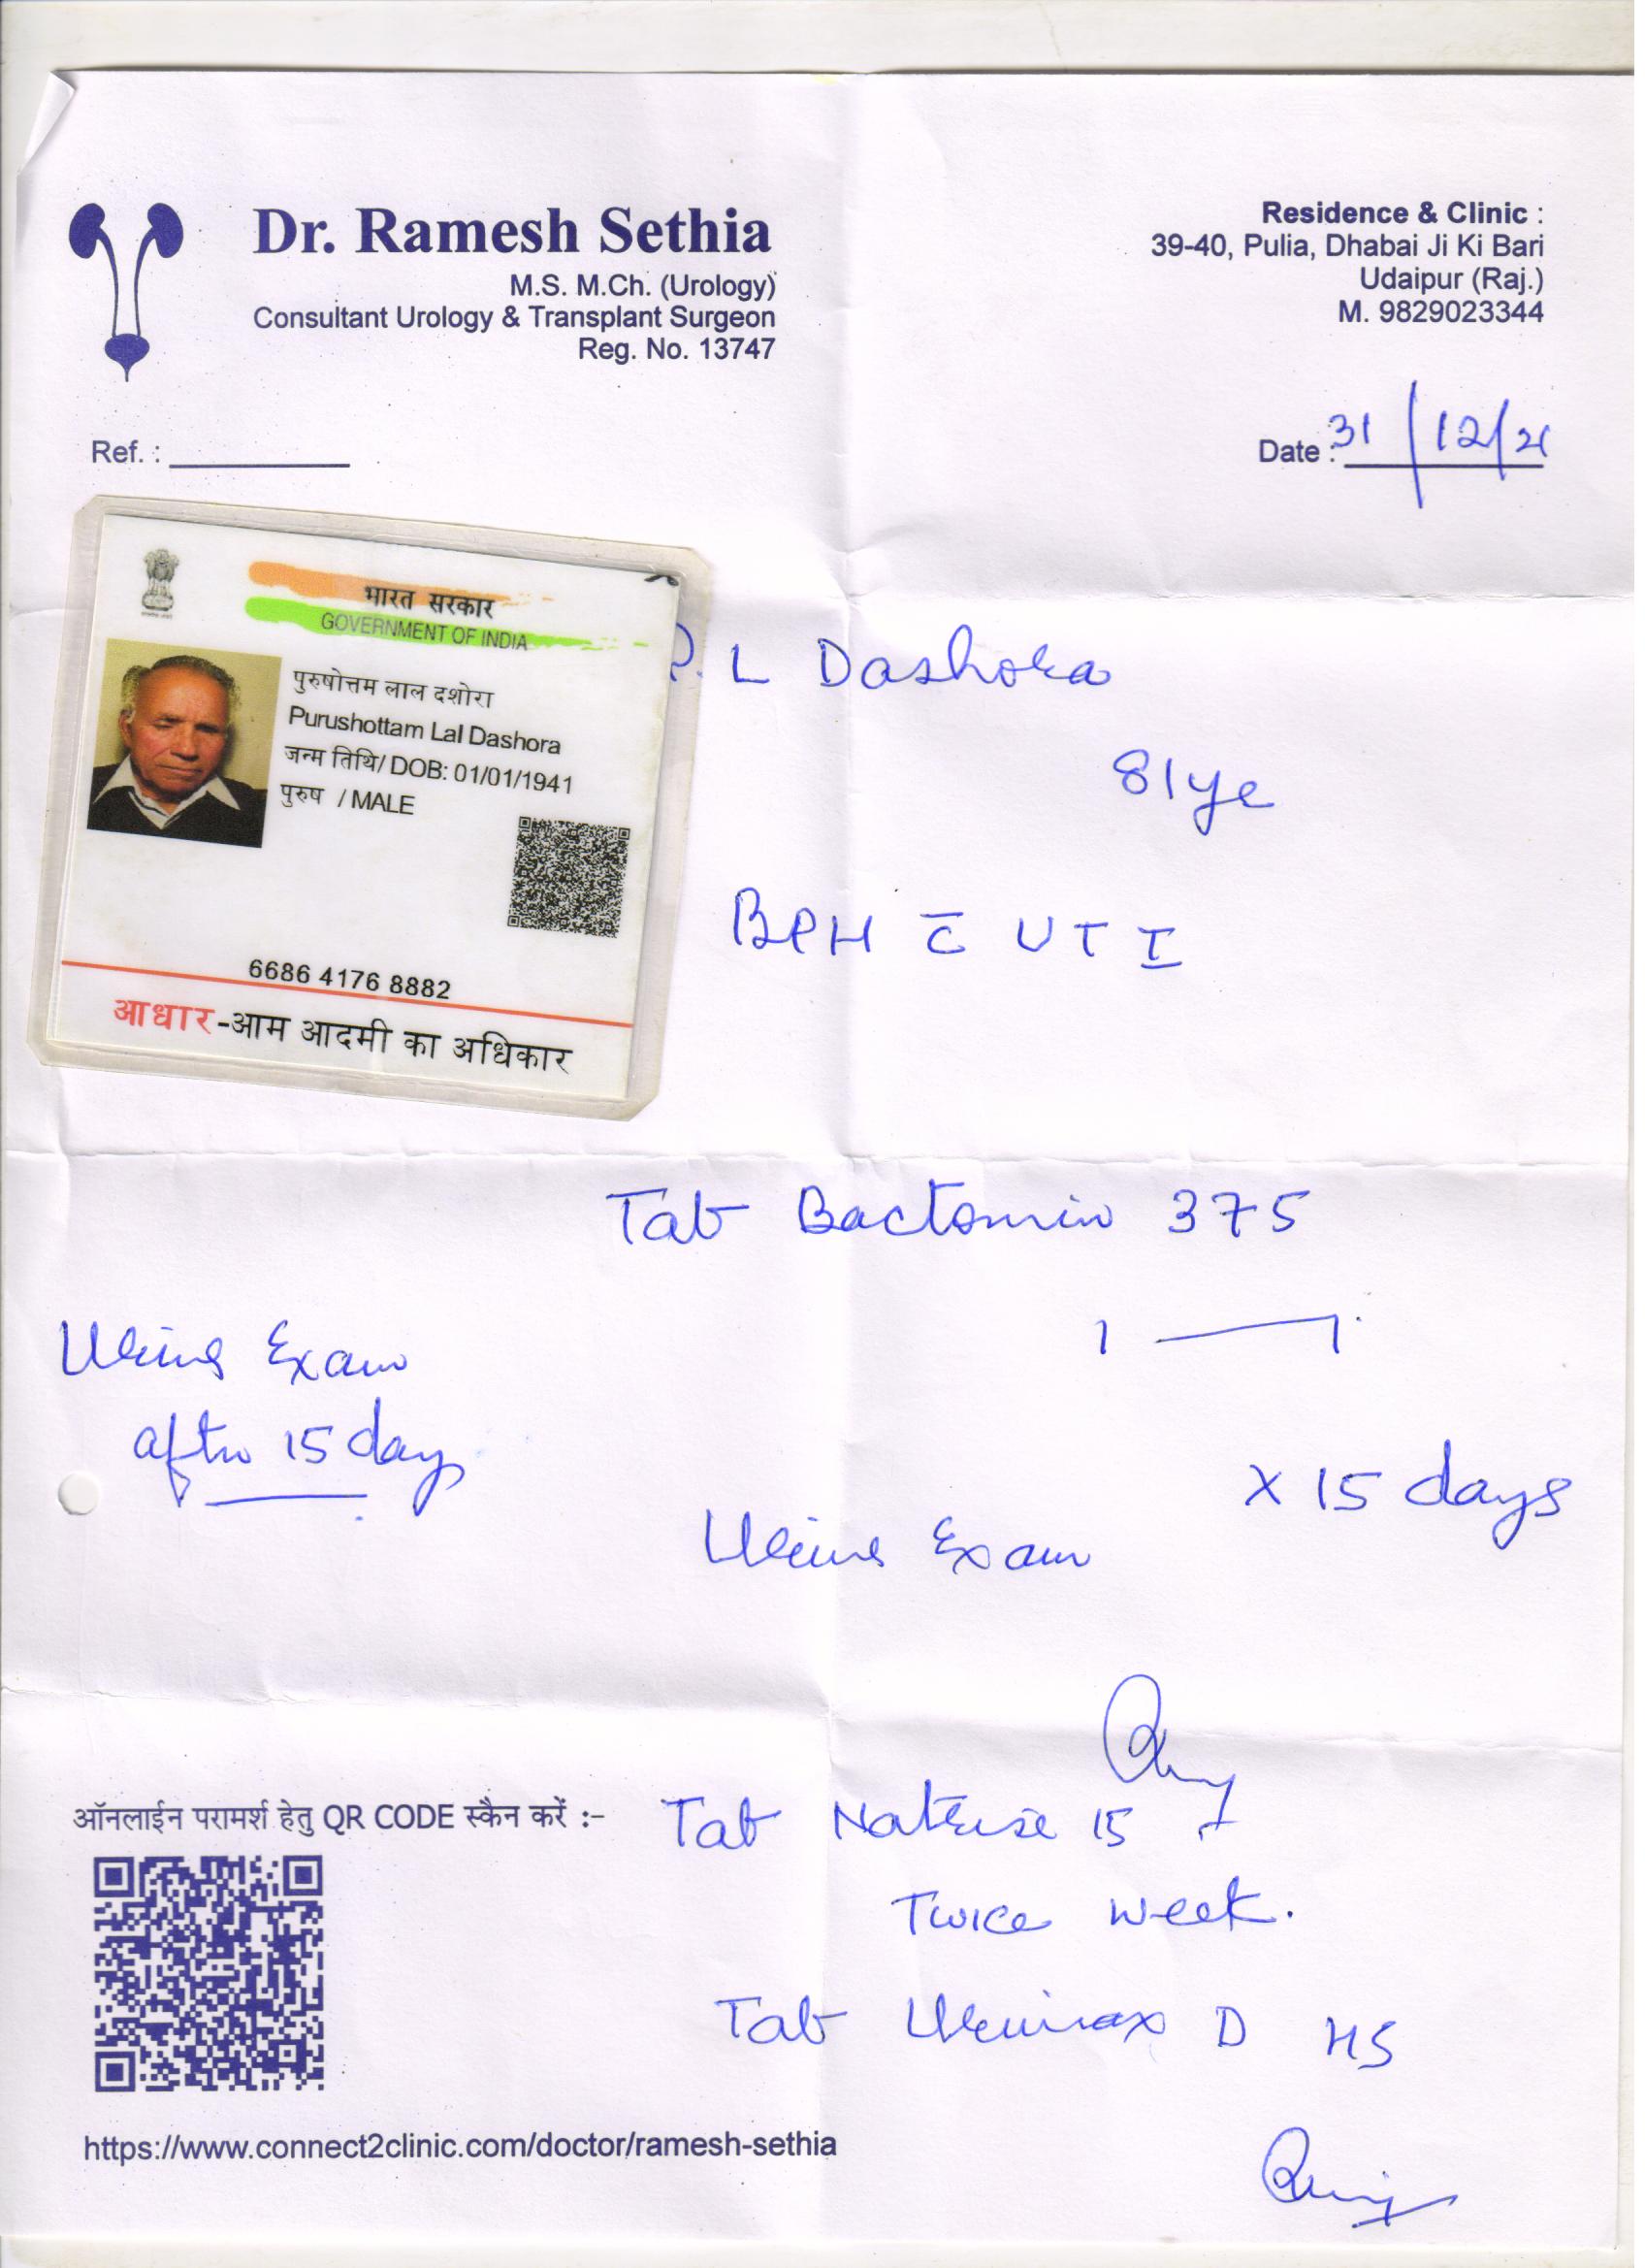 Dr. Ramesh Sethia
M.S. M.Ch. (Urology)
Consultant Urology & Transplant Surgeon
Reg. No. 13747
Residence & Clinic :
39-40, Pulia, Dhabai Ji Ki Bari
Udaipur (Raj.)
M. 9829023344
Ref. :
Date : 31/12/21
भारत सरकार
GOVERNMENT OF INDIA
पुरुषोत्तम लाल दशोरा
Purushottam Lal Dashora
जन्म तिथि/ DOB: 01/01/1941
पुरुष / MALE
6686 4176 8882
आधार-आम आदमी का अधिकार
P. L Dashora
81 ye
BPH c̅ UTI
Tab Bactomin 375
1 — 1
x 15 days
Urine Exam
after 15 days
Urine Exam
Tab Natrise 15
Twice week.
Tab D HS
ऑनलाईन परामर्श हेतु QR CODE स्कैन करें :-
https://www.connect2clinic.com/doctor/ramesh-sethia